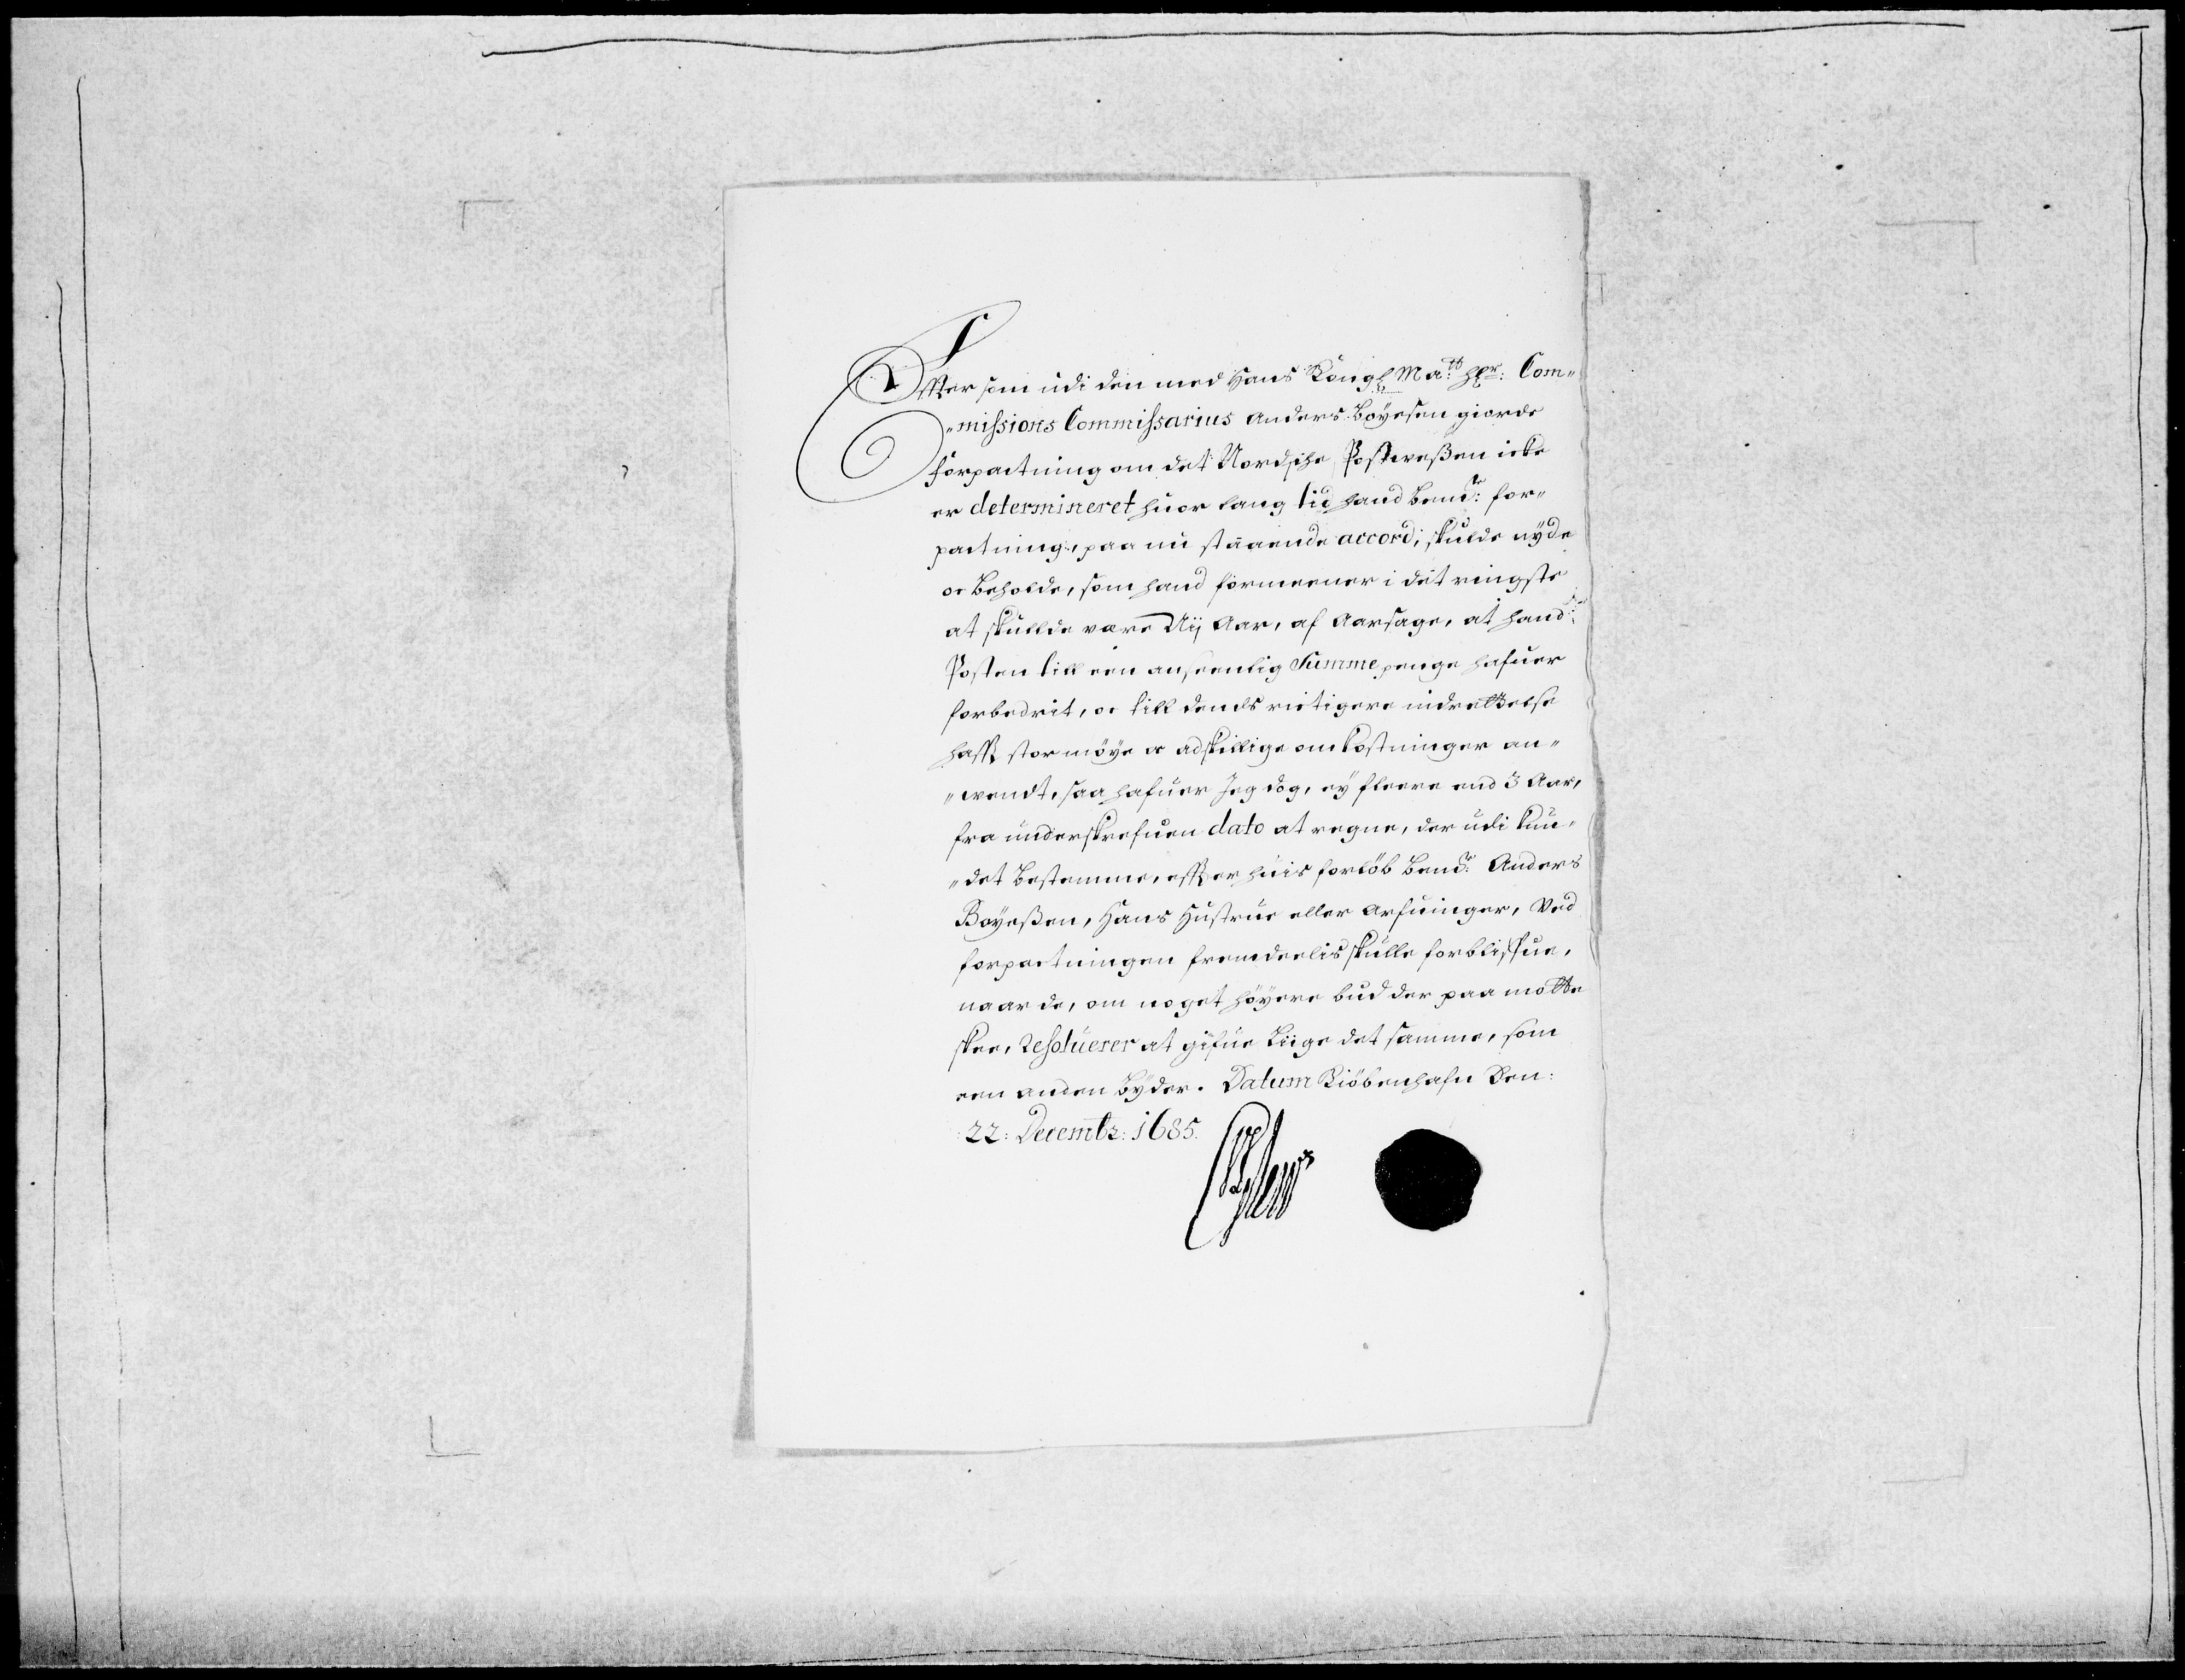 Effter som udi den med Hans Kongl Ma:tt Hr: Com„
„missions Commissarius Anders Böyesen giorde
forpactning om det Nordsche Postweßen icke
er determineret huor lang tid hand bem:te for„
pactning, paa nu staaende accord, skulde nyde
oc beholde, som hand formeener i det ringste
at skullde være Aar, af Aarsage, at hand
Posten till een anseenlig Summe penge hafuer
forbedrit, oc till dends rictigere indrettelse
haffr stor möye oc adskillige omkostninger an„
„wendt, saa hafuer Jeg dog, ey fleere end 3 Aar,
fra underskrefuen dato at regne, der udi kun„
„det bestemme, effter huis forlöb bem:te Anders
Böyeßen, Hans Hustrue eller Arfuinger, ved
forpactningen fremdeelis skulle forbliffue,
naar de, om noget höyere bud der paa motte
skee, Resoluerer at gifue liige det samme, som
een anden byder. Datum Kiöbenhafn Den:
22: Decembr: 1685.